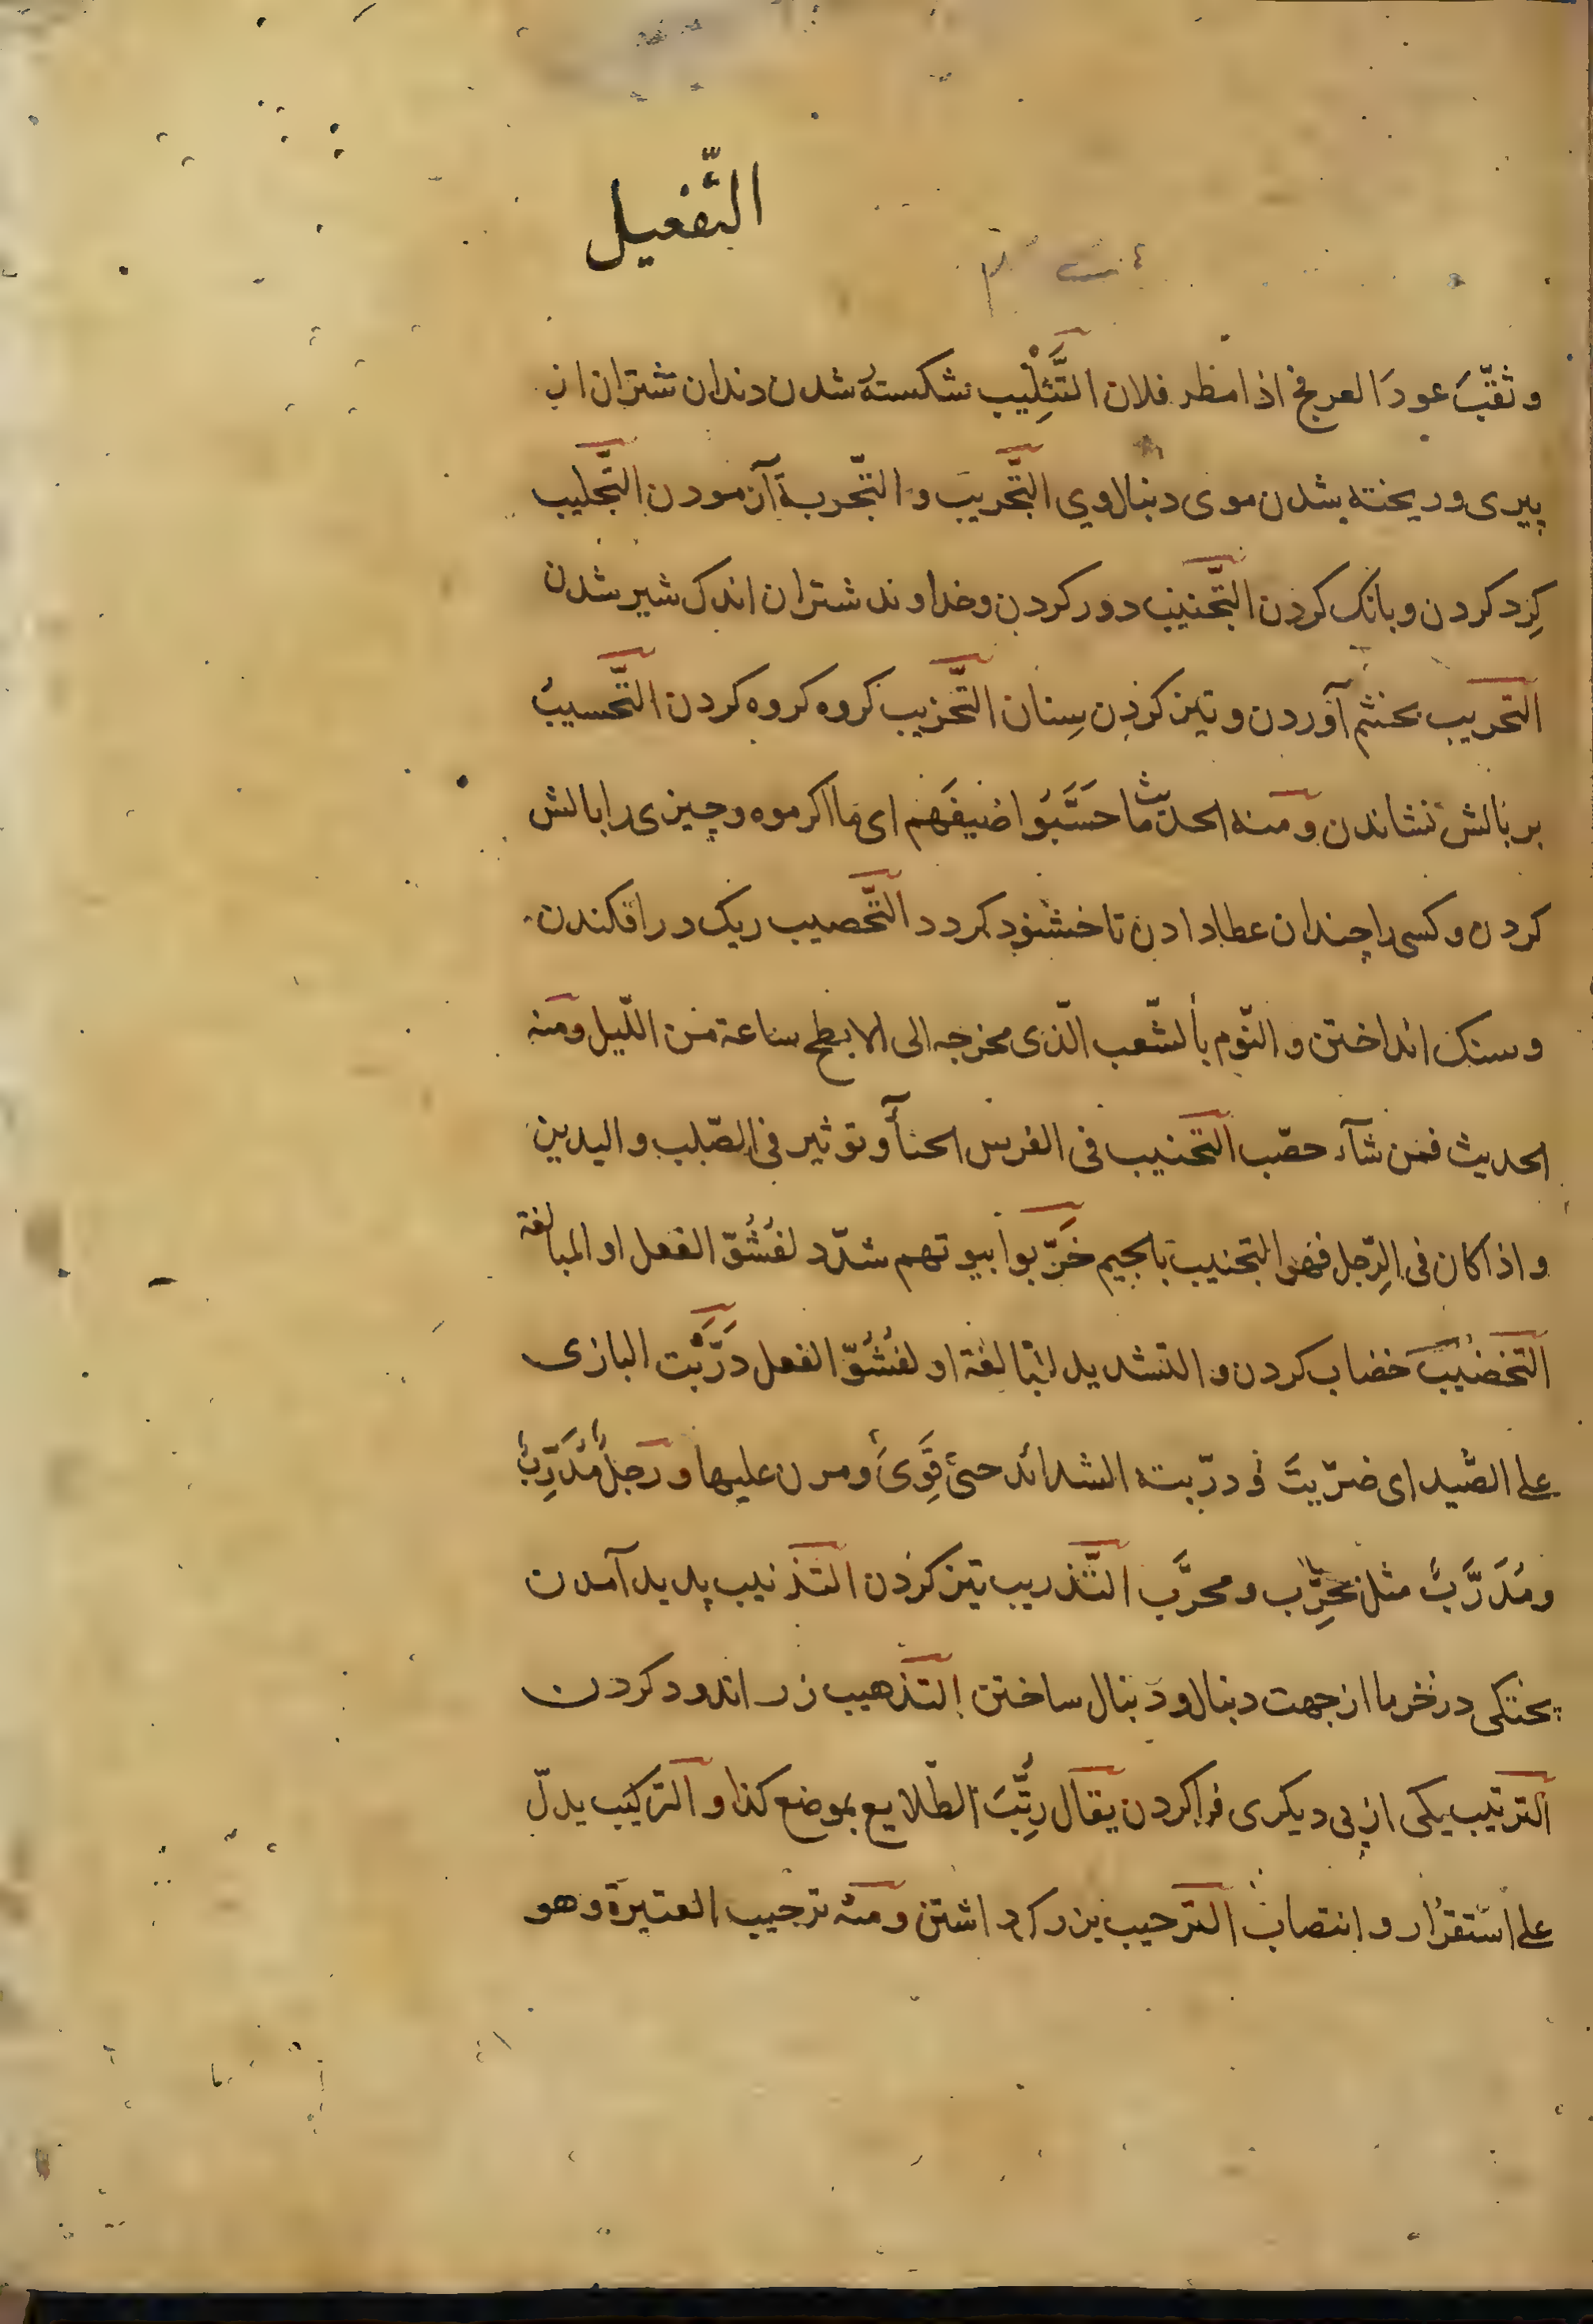 التَّفعيل
و ثقّبَ عودَ العرفج اذا مطر فلان التَّثِلْيب شكسته شدن دندان شتران از
پیری و ریخته شدن موی دنبال وی التَّجریبَ و التّجربة آزمودن التَّجلیب
کِرد کردن و بانک کردن التَّجنیب دور کردن و خداوند شتران اندک شیر شدن
التحریب بخشم آوردن و تیز کردن سِنان التَّحزیب کروه کروه کردن التَّحسیبُ
بر بالش نشاندن و منه الحدیث ما حَسَّبَوُا ضیفَهم ای ما اکرموه و چیزی را بالش
کردن و کسی را چندان عطا دادن تا خشنود کردد التَّحصیب ریک در افکندن
و سنک انداختن و النّوم بالشّعب الّذی مخرجه الی الابطح ساعة من اللّیل و منه
الحدیث فمن شآء حصّب التحنیب فی الفرس انحنأ و توثیر فی الصّلب و الیدین
و اذا کان فی الرِّجل فهو التجنیب بالجیم خَرَّبوا بیوتهم شدّد لفُشُوّ الفعل او المبالغة
التخضیبَ خضاب کردن و التشدید للمبالغة او لفُشُوّ الفعل دَرَّبْت البازی
علی الصّید ای ضرّیتَ و درّبته الشدائد حتی قَوِیَ و مرن علیها و رَجلٌ مُدَرِّبٌ
و مُدَرَّبٌ مثل مجرِّب و مجرَّب التَّذریب تیز کردن التذنیب پدید آمدن
پختکی در خرما از جهت دنبال و دنبال ساختن التذهیب زر اندود کردن
الترتیب یکی از پی دیکری فرا کردن یقال رتِّبَ الطّلایع بموضع کذا و الترکیب یدلّ
علی استقرار و انتصاب الترجیب بزرک داشتن و منه ترجیب العتیرة و هو